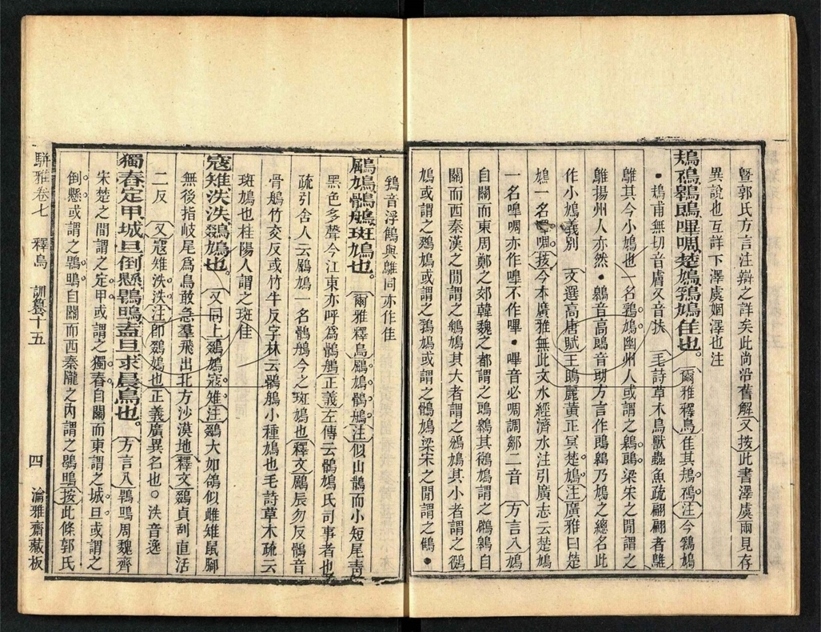 暨郭氏方言注辯之詳矣此尚沿舊解又按此書澤虞兩見存
異說也互詳下澤虞婟澤也注
鳺鴀鶻鵃䳕鵖楚鳩鶉鳩隹也。爾雅釋鳥隹其鳺鴀注今鶉鳩
鳺甫無切音膚又音扶 毛詩草木鳥獸蟲魚疏翩翩者鵻
鵻其今小鳩也一名鶉鳩幽州人或謂之鶻鵃梁宋之閒謂之
鵻揚州人亦然 音高 音
作小鳩義別 文選高唐賦王雎麗黃正冥楚鳩注廣雅曰楚
鳩一名 按今本廣雅無此文水經濟水注引廣志云楚鳩
一名嗶啁亦作 不作嗶 嗶音必啁調鄒二音 方言八鳩
自關而東周鄭之郊韓魏之都謂之 其 鳩謂之 自
關而西秦漢之閒謂之鵴鳩其大者謂之鳻鳩其小者謂之
鳩或謂之鶏鳩或謂之 鳩或謂之鶻鳩梁宋之閒謂之
鵓音浮 與鵻同亦作隹
鶌鳩鶻鵃斑鳩也。爾雅釋鳥鶌鳩鶻鵃注似山鵲而小短尾青
黑色多聲今江東亦呼爲鶻鵃正義左傳云鶻鳩氏司事者也
疏引舍人云鶌鳩一名鶻鵃今之斑鳩也釋文鶌居勿反鶻音
骨鵃竹交反或竹牛反字林云鶻鵃小種鳩也毛詩草木疏云
斑鳩也桂陽人謂之斑隹
寇雉泆泆鵽鳩也。又同上鵽鳩寇雉注鵽大如鴿似雌雉鼠腳
無後指岐尾爲鳥敢急羣飛出北方沙漠地釋文鵽貞刮直活
二反 又寇雉泆泆注卽鵽鳩也正義廣異名也。泆音逸
獨舂定甲城旦倒懸鶡鴠盍旦求晨鳥也。方言八鶡鴠周魏齊
宋楚之間謂之定甲或謂之獨舂自關而東謂之城旦或謂之
倒懸或謂之鶡鴠自關而西秦隴之內謂之鶡鴠按此條郭氏
駢雅卷七 釋鳥 訓纂十五 四 瀹雅齋藏板